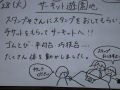 28(火) サーキット遊園地
スタッフさんにスタンプをおしてもらい
チケットをもらってサーキットへ!!
ゴムとび 平均台 巧技台…
たくさん体を動かしました。